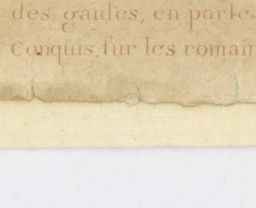 des gaules, en porte
Conquis, sur les romain